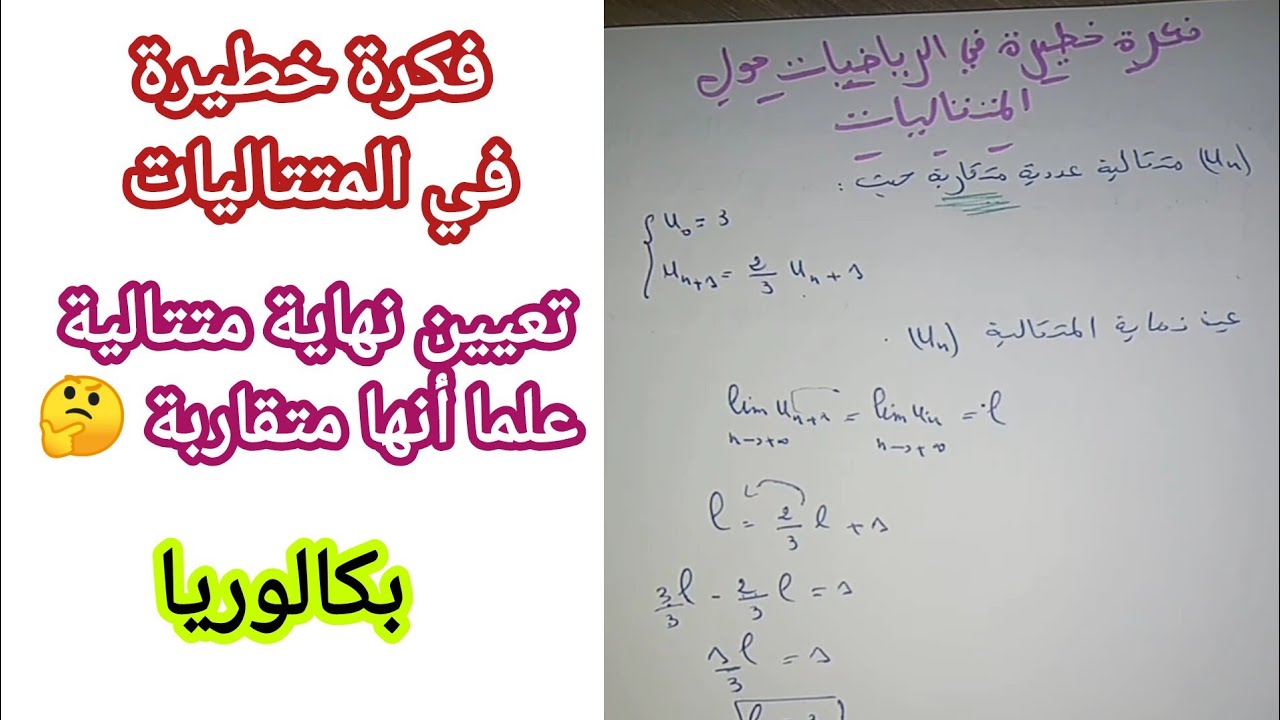 فكرة خطيرة
في المتتاليات
تعيين نهاية متتالية
علما أنها متقاربة 🤔
بكالوريا
فكرة خطيرة في الرياضيات حول
المتتاليات
(Uₙ) متتالية عددية متقاربة حيث :
U₀ = 3
Uₙ₊₁ = 2/3 Uₙ + 1
عين نهاية المتتالية (Uₙ) .
lim Uₙ₊₁ = lim Uₙ = l
n→+∞ n→+∞
l = 2/3 l + 1
3/3 l - 2/3 l = 1
1/3 l = 1